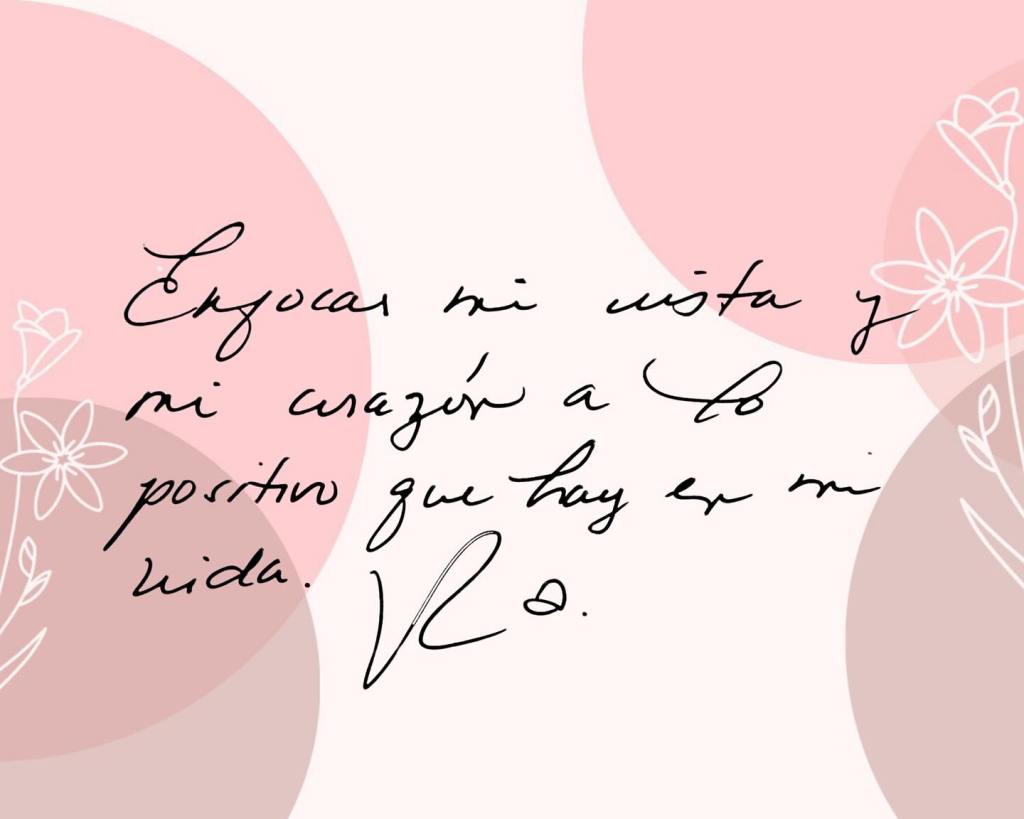 Enfocar mi vista y
mi corazón a lo
positivo que hay en mi
vida.